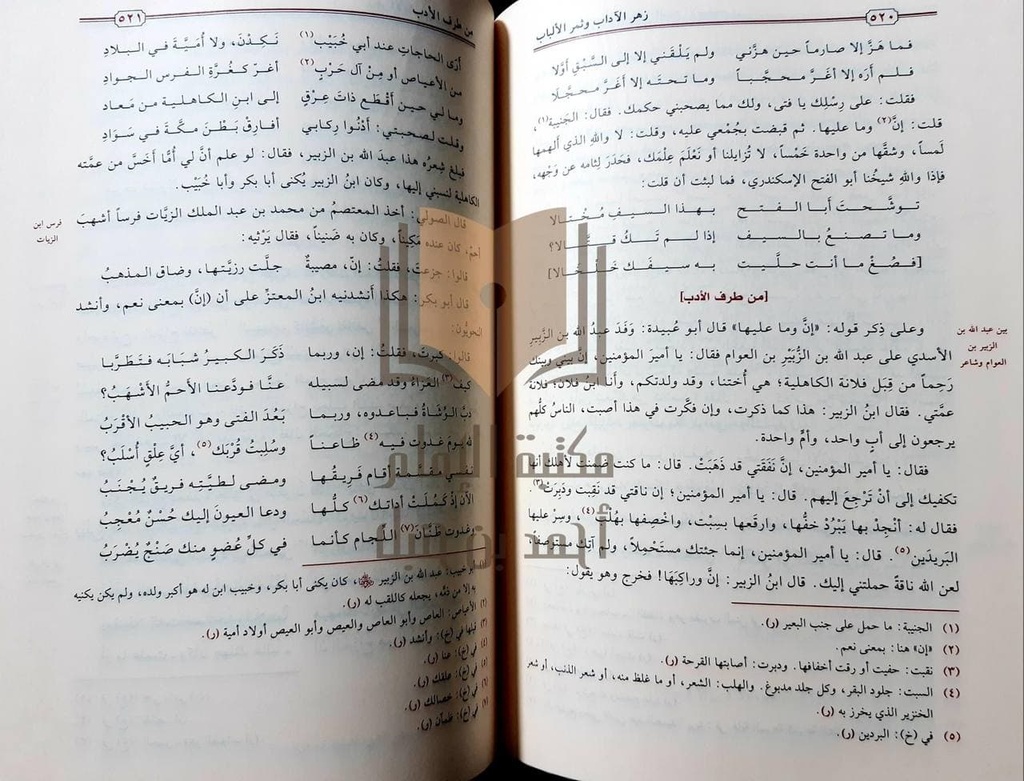 ٥٢٠ زهر الآداب وثمر الألباب
فما هَزَّ إلا صارماً حين هزَّني ولم يَلْقَني إلا إلى السَّبْقِ أوَّلا
فلم أرَه إلا أغَرَّ محجَّباً وما تحته إلا أغَرَّ محجَّلا
فقلت: على رِسْلِك يا فتى، ولك مما يصحبني حكمك. فقال: الجَنِيبة(١)،
قلت: إنَّ(٢) وما عليها. ثم قبضت بجُمْعي عليه، وقلت: لا واللهِ الذي ألهمها
لَمساً، وشقَّها من واحدة خَمْساً، لا تُزايلنا أو نَعْلَم عِلْمَك، فحَدَر لِثامه عن وَجْهه،
فإذا واللهِ شيخُنا أبو الفتح الإسكندري، فما لبثت أن قلت:
توشَّحتَ أبا الفتح بهذا السيفِ مُخْتالا
وما تصنعُ بالسيف إذا لم تَكُ قتَّالا؟
[فصُغْ ما أنت حلَّيت به سيفَك خَلْخالا]
[من طرف الأدب]
بين عبد الله بن
الزبير بن
العوام وشاعر
وعلى ذِكر قوله: «إنَّ وما عليها» قال أبو عُبيدة: وَفَدَ عبدُ الله بن الزَّبِير
الأسدي على عبد الله بن الزُّبَيْرِ بن العوام فقال: يا أميرَ المؤمنين، إنَّ بيني وبينك
رَحِماً من قِبَل فلانة الكاهلية؛ هي أُختنا، وقد ولدتكم، وأنا ابنُ فلان؛ فلانة
عمَّتي. فقال ابنُ الزبير: هذا كما ذكرت، وإن فكَّرت في هذا أصبت، الناسُ كلُّهم
يرجعون إلى أبٍ واحد، وأمٍّ واحدة.
فقال: يا أمير المؤمنين، إنَّ نَفَقَتي قد ذَهَبَتْ. قال: ما كنت ضمنت لأهلك أنها
تكفيك إلى أنْ تَرْجِعَ إليهم. قال: يا أمير المؤمنين؛ إن ناقتي قد نَقِبت ودَبِرَتْ(٣).
فقال له: أنْجِدْ بها يَبْرُدْ خفُّها، وارقَعها بسِبْت، واخْصِفها بهُلْب(٤)، وسِرْ عليها
البَرِيدَين(٥). قال: يا أمير المؤمنين، إنما جئتك مستَحْمِلاً، ولم آتِك مستوصفاً،
لعن الله ناقةً حملتني إليك. قال ابنُ الزبير: إنَّ وراكبَها! فخرج وهو يقول:
(١) الجنيبة: ما حمل على جنب البعير (ر).
(٢) «إن» هنا: بمعنى نعم.
(٣) نقبت: حفيت أو رقت أخفافها. ودبرت: أصابتها القرحة (ر).
(٤) السبت: جلود البقر، وكل جلد مدبوغ. والهلب: الشعر، أو ما غلظ منه، أو شعر الذنب، أو شعر
الخنزير الذي يخرز به (ر).
(٥) في (خ): البردين (ر).
من طرف الأدب ٥٢١
أرَى الحاجاتِ عند أبي خُبَيْبٍ(١) نَكِدْنَ، ولا أُميَّةَ في البلادِ
من الأعياصِ أو مِنْ آل حَرْبٍ(٢) أغرّ كغُرَّةِ الفرس الجوادِ
وما لي حين أقْطَع ذاتَ عِرْقٍ إلى ابنِ الكاهلية من مَعاد
وقلت لصحبتي: أدْنُوا رِكابي أفارِقْ بَطْنَ مكَّةَ في سَوَادِ
فبلغ شِعرُه هذا عبدَ الله بن الزبير، فقال: لو علم أنَّ لي أُمًّا أخَسَّ من عمَّته
الكاهلية لنسبني إليها، وكان ابنُ الزبير يُكنى أبا بكر وأبا خُبَيْب.
فرس ابن
الزيات
قال الصولي: أخذ المعتصمُ من محمد بن عبد الملك الزيَّات فرساً أشهبَ
أحمَّ، كان عنده مَكِيناً، وكان به ضَنيناً، فقال يَرْثيه:
قالوا: جزعتَ، فقلتُ: إنّ، مصيبةٌ جلَّت رزيَّتها، وضاق المذهبُ
قال أبو بكر: هكذا أنشدنيه ابنُ المعتزِّ على أن (إنَّ) بمعنى نعم، وأنشد
النحويُّون:
قالوا: كبِرتَ، فقلتُ: إن، وربما ذَكَرَ الكبيرُ شبابَه فتَطَرَّبا
كيف(٣) العَزاءُ وقد مضى لسبيله عنَّا فودَّعنا الأحمُّ الأشْهَبُ؟
دبَّ الوُشَاةُ فباعدوه، وربما بَعُدَ الفتى وهو الحبيبُ الأقْرَبُ
لله يومَ غدوتَ فيه(٤) ظاعناً وسُلِبتُ قُرْبَك(٥)، أيَّ عِلْقٍ أُسْلَبُ؟
نفسي مقسَّمة أقام فَرِيقُها ومضى لطيَّتِه فريقٌ يُجْنَبُ
الآن إذْ كَمُلَتْ أداتك(٦) كلُّها ودعا العيونَ إليك حُسْنٌ مُعْجِبُ
وغدوت طَنَّانَ(٧) اللِّجام كأنما في كلِّ عُضوٍ منك صَنْجٌ يُضْرَبُ
(١) أبو خبيب: عبد الله بن الزبير، كان يكنى أبا بكر، وخبيب ابن له هو أكبر ولده، ولم يكن يكنيه
به إلا من ذمَّه، يجعله كاللقب له (ر).
(٢) الأعياص: العاص وأبو العاص والعيص وأبو العيص أولاد أمية (ر).
(٣) قبلها في (خ): وأنشد (ر).
(٤) في (خ): عنا (ر).
(٥) في (خ): علقك (ر).
(٦) في (خ): خصالك (ر).
(٧) في (خ): ظمآن (ر).
مكتبة الإمام
أحمد بن حنبل